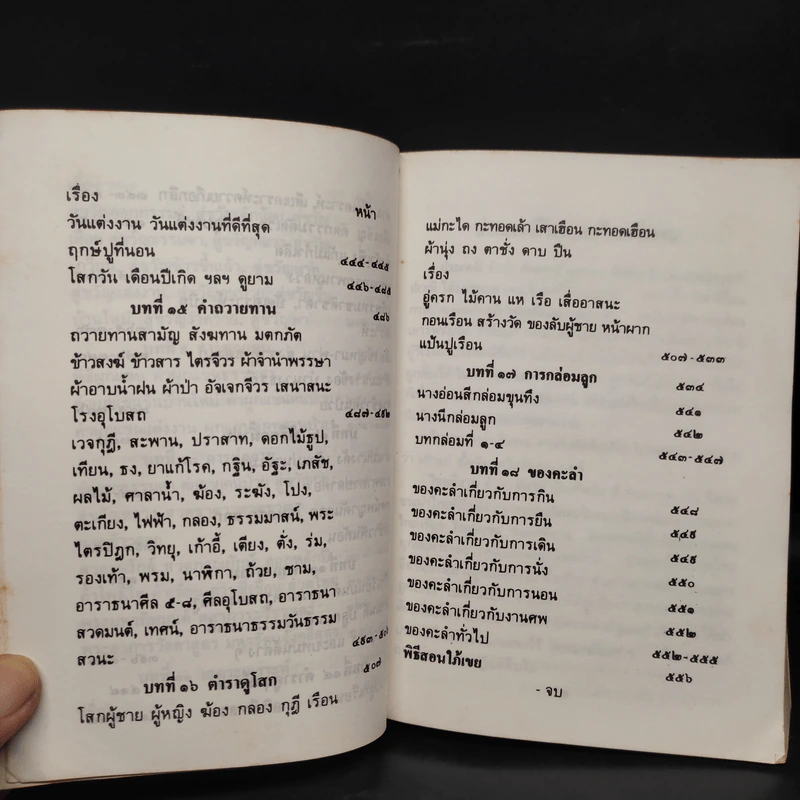 เรื่อง
หน้า
วันแต่งงาน วันแต่งงานที่ดีที่สุด
ฤกษ์ปูที่นอน ๔๔๔-๔๔๕
โสกวัน เดือนปีเกิด ฯลฯ ดูยาม ๔๔๖-๔๘๕
บทที่ ๑๕ คำถวายทาน ๔๘๖
ถวายทานสามัญ สังฆทาน มตกภัต
ข้าวสงฆ์ ข้าวสาร ไตรจีวร ผ้าจำนำพรรษา
ผ้าอาบน้ำฝน ผ้าป่า อัจเจกจีวร เสนาสนะ
โรงอุโบสถ ๔๘๗-๔๙๒
เวจกุฎี, สะพาน, ปราสาท, ดอกไม้ธูป,
เทียน, ธง, ยาแก้โรค, กฐิน, อัฐะ, เภสัช,
ผลไม้, ศาลาน้ำ, ฆ้อง, ระฆัง, โปง,
ตะเกียง, ไฟฟ้า, กลอง, ธรรมมาสน์, พระ
ไตรปิฎก, วิทยุ, เก้าอี้, เตียง, ตั่ง, ร่ม,
รองเท้า, พรม, นาฬิกา, ถ้วย, ชาม,
อาราธนาศีล ๕-๘, ศีลอุโบสถ, อาราธนา
สวดมนต์, เทศน์, อาราธนาธรรมวันธรรม
สวนะ ๔๙๓-๕๐๖
บทที่ ๑๖ ตำราดูโสก ๕๐๗
โสกผู้ชาย ผู้หญิง ฆ้อง กลอง กุฎี เรือน
แม่กะได กะทอดเล้า เสาเฮือน กะทอดเฮือน
ผ้านุ่ง ถง ตาชั่ง ดาบ ปืน
เรื่อง
อู่ครก ไม้คาน แห เรือ เสื่ออาสนะ
กอนเรือน สร้างวัด ของลับผู้ชาย หน้าผาก
แป้นปูเรือน ๕๐๗-๕๓๓
บทที่ ๑๗ การกล่อมลูก ๕๓๔
นางอ่อนสีกล่อมขุนทึง ๕๔๑
นางนีกล่อมลูก ๕๔๒
บทกล่อมที่ ๑-๔ ๕๔๓-๕๔๗
บทที่ ๑๘ ของคะลำ
ของคะลำเกี่ยวกับการกิน ๕๔๘
ของคะลำเกี่ยวกับการยืน ๕๔๙
ของคะลำเกี่ยวกับการเดิน ๕๔๙
ของคะลำเกี่ยวกับการนั่ง ๕๕๐
ของคะลำเกี่ยวกับการนอน ๕๕๑
ของคะลำเกี่ยวกับงานศพ ๕๕๒
ของคะลำทั่วไป ๕๕๒-๕๕๕
พิธีสอนใภ้เขย ๕๕๖
- จบ